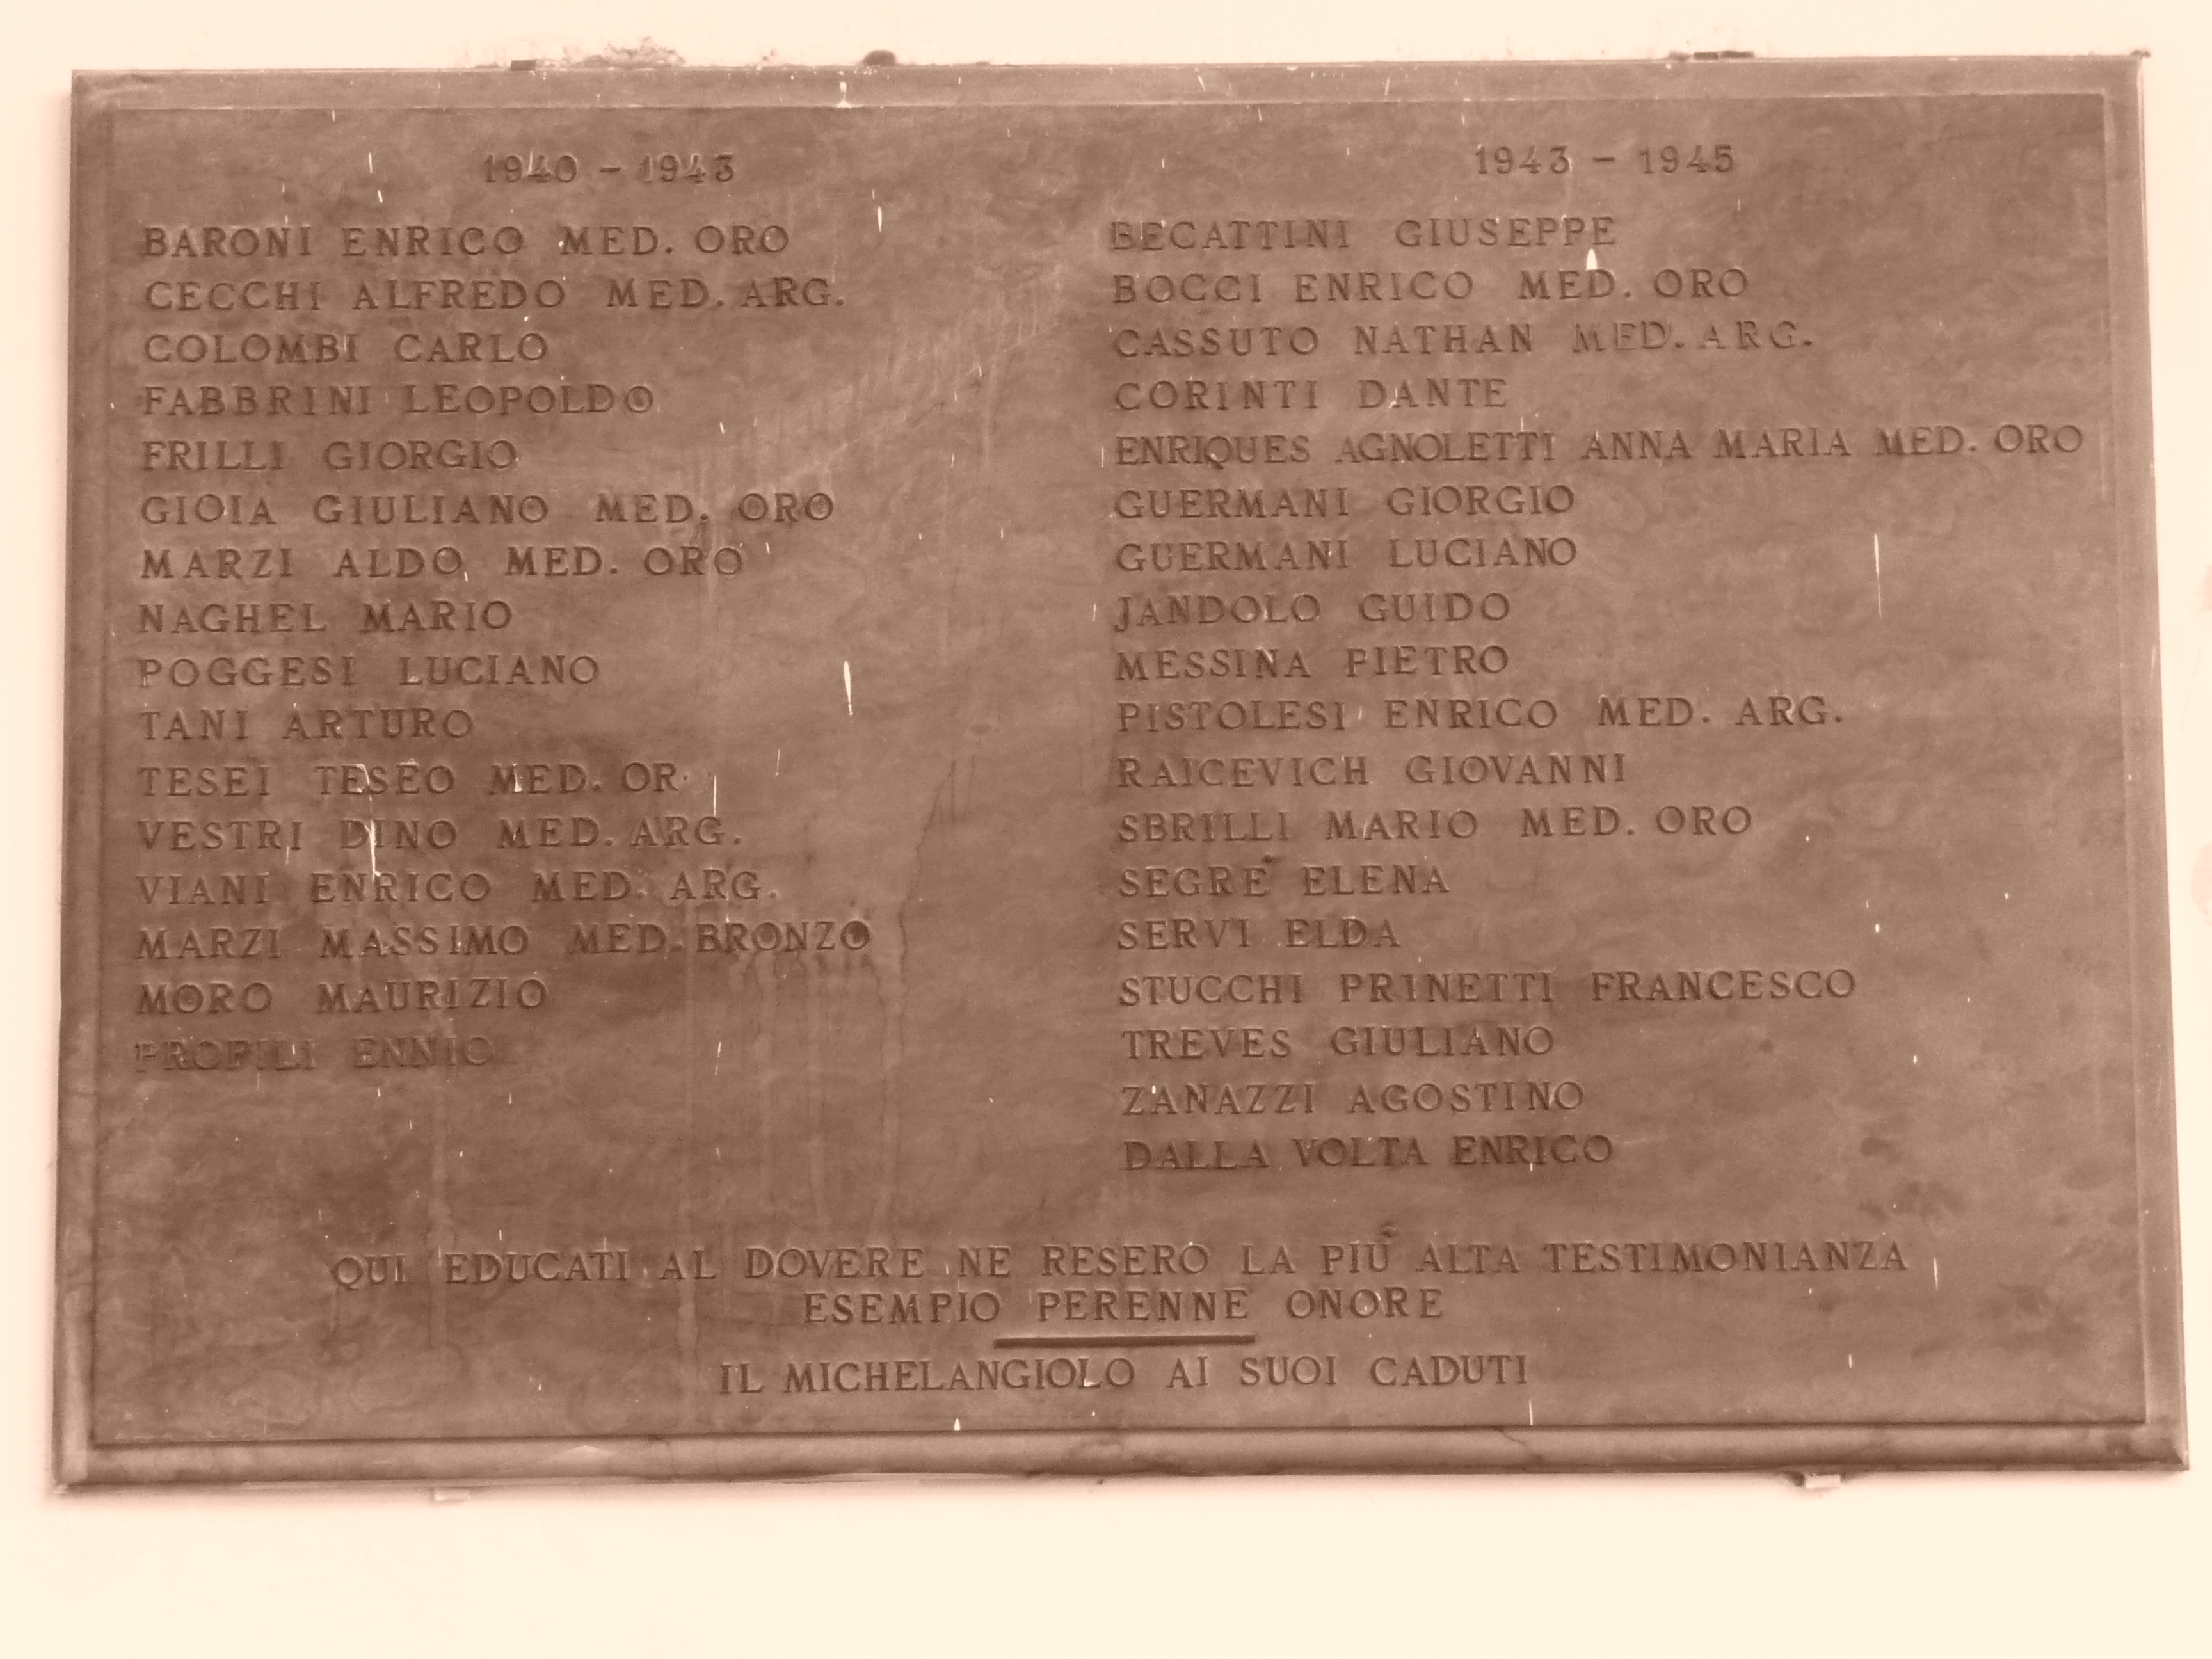 1940 - 1943
BARONI ENRICO MED. ORO
CECCHI ALFREDO MED. ARG.
COLOMBI CARLO
FABBRINI LEOPOLDO
FRILLI GIORGIO
GIOIA GIULIANO MED. ORO
MARZI ALDO MED. ORO
NAGHEL MARIO
POGGESI LUCIANO
TANI ARTURO
TESEI TESEO MED. OR
VESTRI DINO MED. ARG.
VIANI ENRICO MED. ARG.
MARZI MASSIMO MED. BRONZO
MORO MAURIZIO
PROFILI ENNIO
1943 - 1945
BECATTINI GIUSEPPE
BOCCI ENRICO MED. ORO
CASSUTO NATHAN MED. ARG.
CORINTI DANTE
ENRIQUES AGNOLETTI ANNA MARIA MED. ORO
GUERMANI GIORGIO
GUERMANI LUCIANO
JANDOLO GUIDO
MESSINA PIETRO
PISTOLESI ENRICO MED. ARG.
RAICEVICH GIOVANNI
SBRILLI MARIO MED. ORO
SEGRÈ ELENA
SERVI ELDA
STUCCHI PRINETTI FRANCESCO
TREVES GIULIANO
ZANAZZI AGOSTINO
DALLA VOLTA ENRICO
QUI EDUCATI AL DOVERE NE RESERO LA PIÙ ALTA TESTIMONIANZA
ESEMPIO PERENNE ONORE
IL MICHELANGIOLO AI SUOI CADUTI